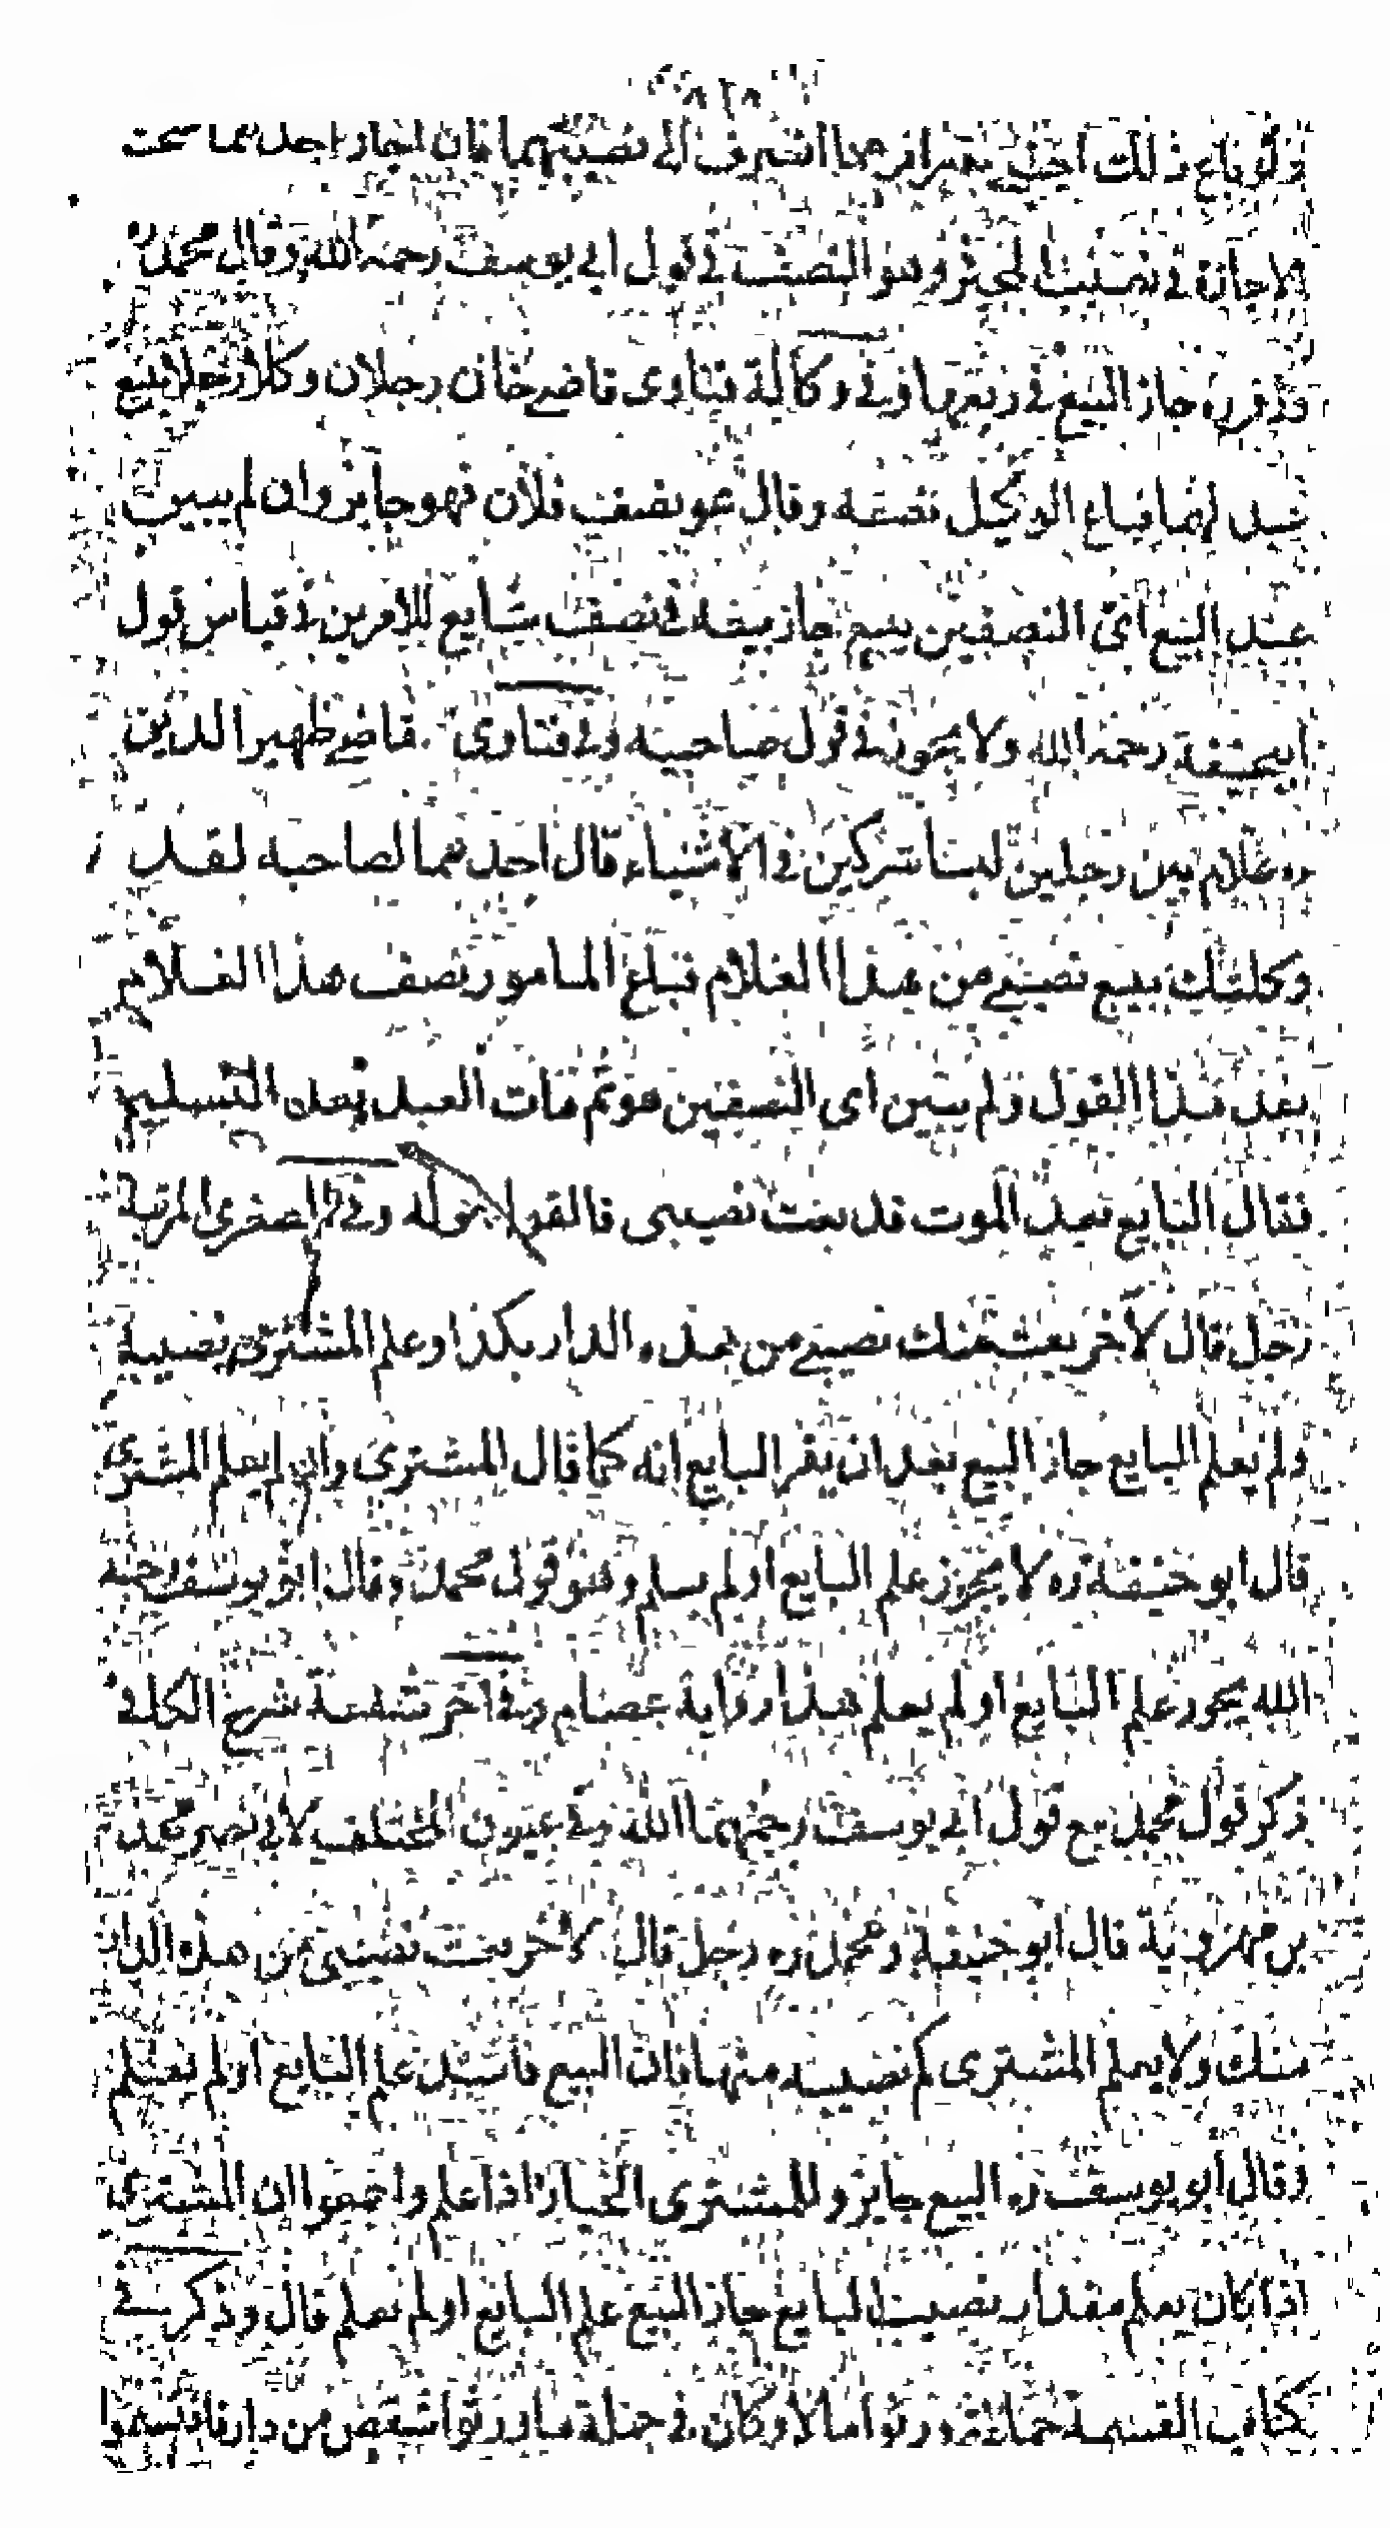 ولو باع ذلك اجنبي بغير امرهما انصرف الى نصيبهما فان اجاز احدهما صحت
الاجازة في نصيب المجيز وهو النصف في قول ابي يوسف رحمه الله وقال محمد ره
وزفر ره جاز البيع في ربعها وفي وكالة فتاوى قاضي خان رجلان وكلا رجلا ببيع
عبد لهما فباع الوكيل نصفه وقال هو نصف فلان فهو جايز وان لم يبين
عند البيع اي النصفين يبيع جاز بيعه في نصف شايع للامرين في قياس قول
ابيحنيفة رحمه الله ولا يجوز في قول صاحبيه وفي فتاوى قاضي ظهير الدين
ره غلام بين رجلين ليسا شركين في الاشياء قال احدهما لصاحبه لقد
وكلتك ببيع نصيبي من هذا الغلام فباع المامور نصف هذا الغلام
بعد هذا القول ولم يبين اى النصفين هو ثم مات العبد بعد التسليم
فقال البايع بعد الموت قد بعت نصيبى فالقول قوله وفي الصغرى المرتبة
رجل قال لآخر بعت منك نصيبي من هذه الدار بكذا وعلم المشترى بنصيبه
ولم يعلم البايع جاز البيع بعد ان يقر البايع انه كما قال المشترى وان لم يعلم المشترى
قال ابو حنيفة ره لا يجوز علم البايع او لم يعلم وهو قول محمد وقال ابو يوسف رحمه
الله يجوز علم البايع او لم يعلم هذا رواية عصام وفي اخر شفعة شرح الكافي
ذكر قول محمد مع قول ابي يوسف رحمهما الله وفي عيون المختلف لابي نصر محمد
بن مهرويه قال ابو حنيفة ومحمد ره رجل قال لآخر بعت نصيبى من هذه الدار
منك ولا يعلم المشترى كم نصيبه منها فان البيع فاسد علم البايع او لم يعلم
وقال ابو يوسف ره البيع جايز وللمشترى الخيار اذا علم واجمعوا ان المشترى
اذا كان يعلم مقدار نصيب البايع جاز البيع علم البايع او لم يعلم قال وذكر في
كتاب القسمة جماعة ورثوا مالا وكان في جملة ما ورثوا شقص من دار فاقتسموا